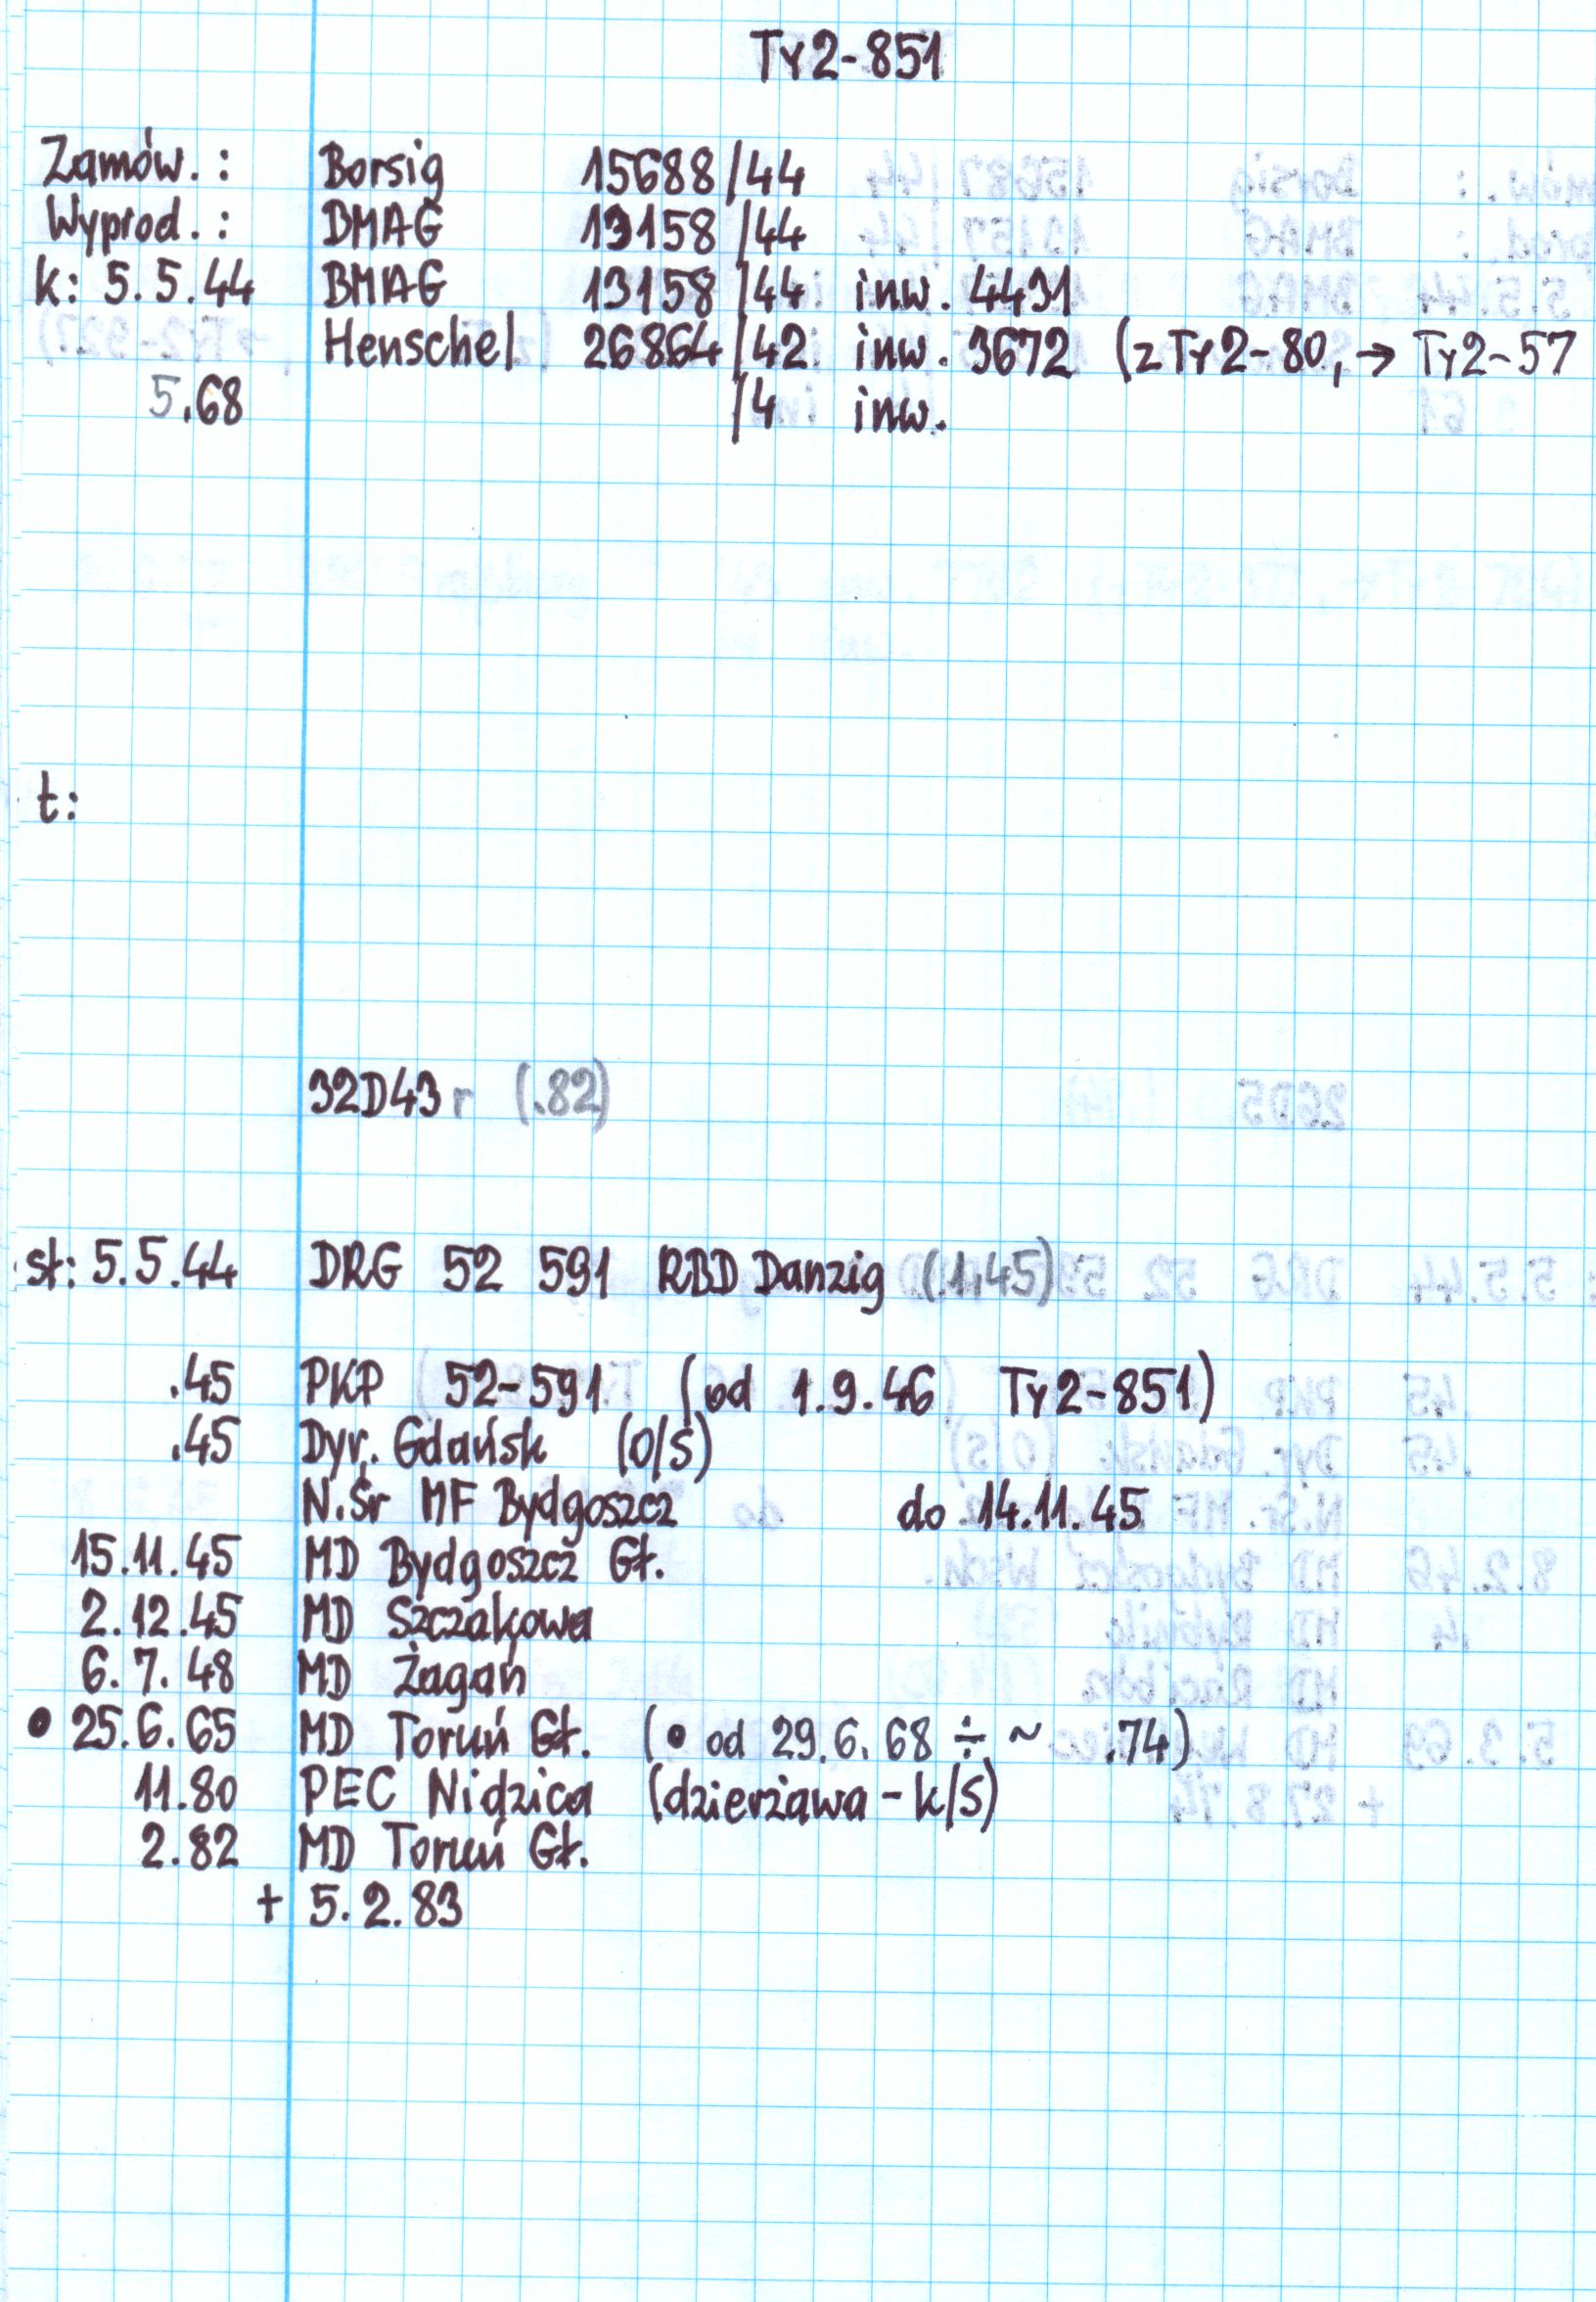 Ty2-851
Zamów.: Borsig 15688/44
Wyprod.: BMAG 13158/44
k: 5.5.44 BMAG 13158/44 inw. 4431
Henschel 26864/42 inw. 3672 (z Ty2-80, → Ty2-57
5.68 /4 inw.
t:
32D43r (.82)
st: 5.5.44 DRG 52 591 RBD Danzig (.1.45)
.45 PKP 52-591 (od 1.9.46 Ty2-851)
.45 Dyr. Gdańsk (O/S)
N.Śr MF Bydgoszcz do 14.11.45
15.11.45 MD Bydgoszcz Gł.
2.12.45 MD Szczakowa
6.7.48 MD Żagań
• 25.6.65 MD Toruń Gł. (• od 29.6.68 ÷ ~ .74)
11.80 PEC Nidzica (dzierżawa - k/S)
2.82 MD Toruń Gł.
+ 5.2.83